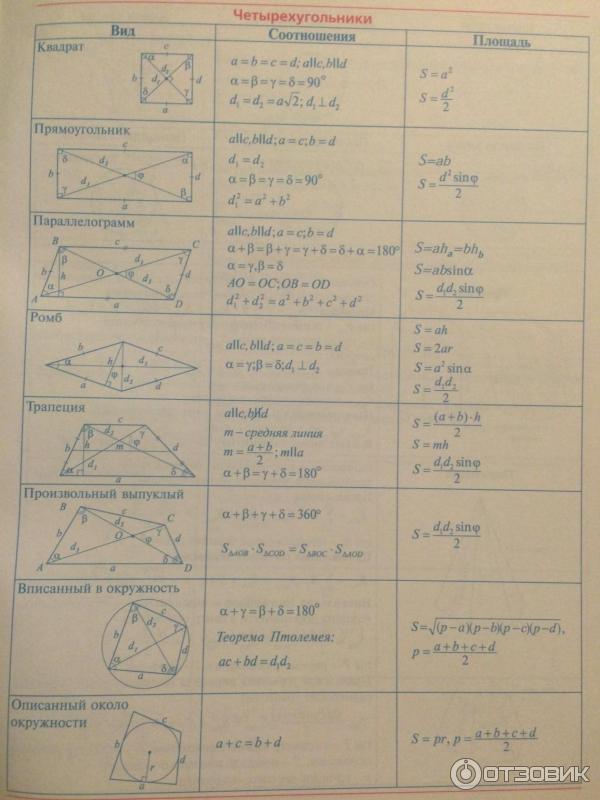 Четырехугольники
Вид Соотношения Площадь
Квадрат
a = b = c = d; a||c, b||d
α = β = γ = δ = 90°
d₁ = d₂ = a√2; d₁ ⊥ d₂
S = a²
S = d²/2
Прямоугольник
a||c, b||d; a = c; b = d
d₁ = d₂
α = β = γ = δ = 90°
d₁² = a² + b²
S=ab
S = d² sinφ/2
Параллелограмм
a||c, b||d; a = c; b = d
α + β = β + γ = γ + δ = δ + α = 180°
α = γ, β = δ
AO = OC; OB = OD
d₁² + d₂² = a² + b² + c² + d²
S=ahₐ=bh_b
S=absinα
S = d₁d₂ sinφ/2
Ромб
a||c, b||d; a = c = b = d
α = γ; β = δ; d₁ ⊥ d₂
S = ah
S = 2ar
S = a² sinα
S = d₁d₂/2
Трапеция
a||c, b∦d
m – средняя линия
m = a+b/2; m||a
α + β = γ + δ = 180°
S = (a+b)·h/2
S = mh
S = d₁d₂ sinφ/2
Произвольный выпуклый
α + β + γ + δ = 360°
S△AOB · S△COD = S△BOC · S△AOD
S = d₁d₂ sinφ/2
Вписанный в окружность
α + γ = β + δ = 180°
Теорема Птолемея:
ac + bd = d₁d₂
S=√(p−a)(p−b)(p−c)(p−d),
p = a+b+c+d/2
Описанный около
окружности
a + c = b + d
S = pr, p = a+b+c+d/2
ОТЗОВИК